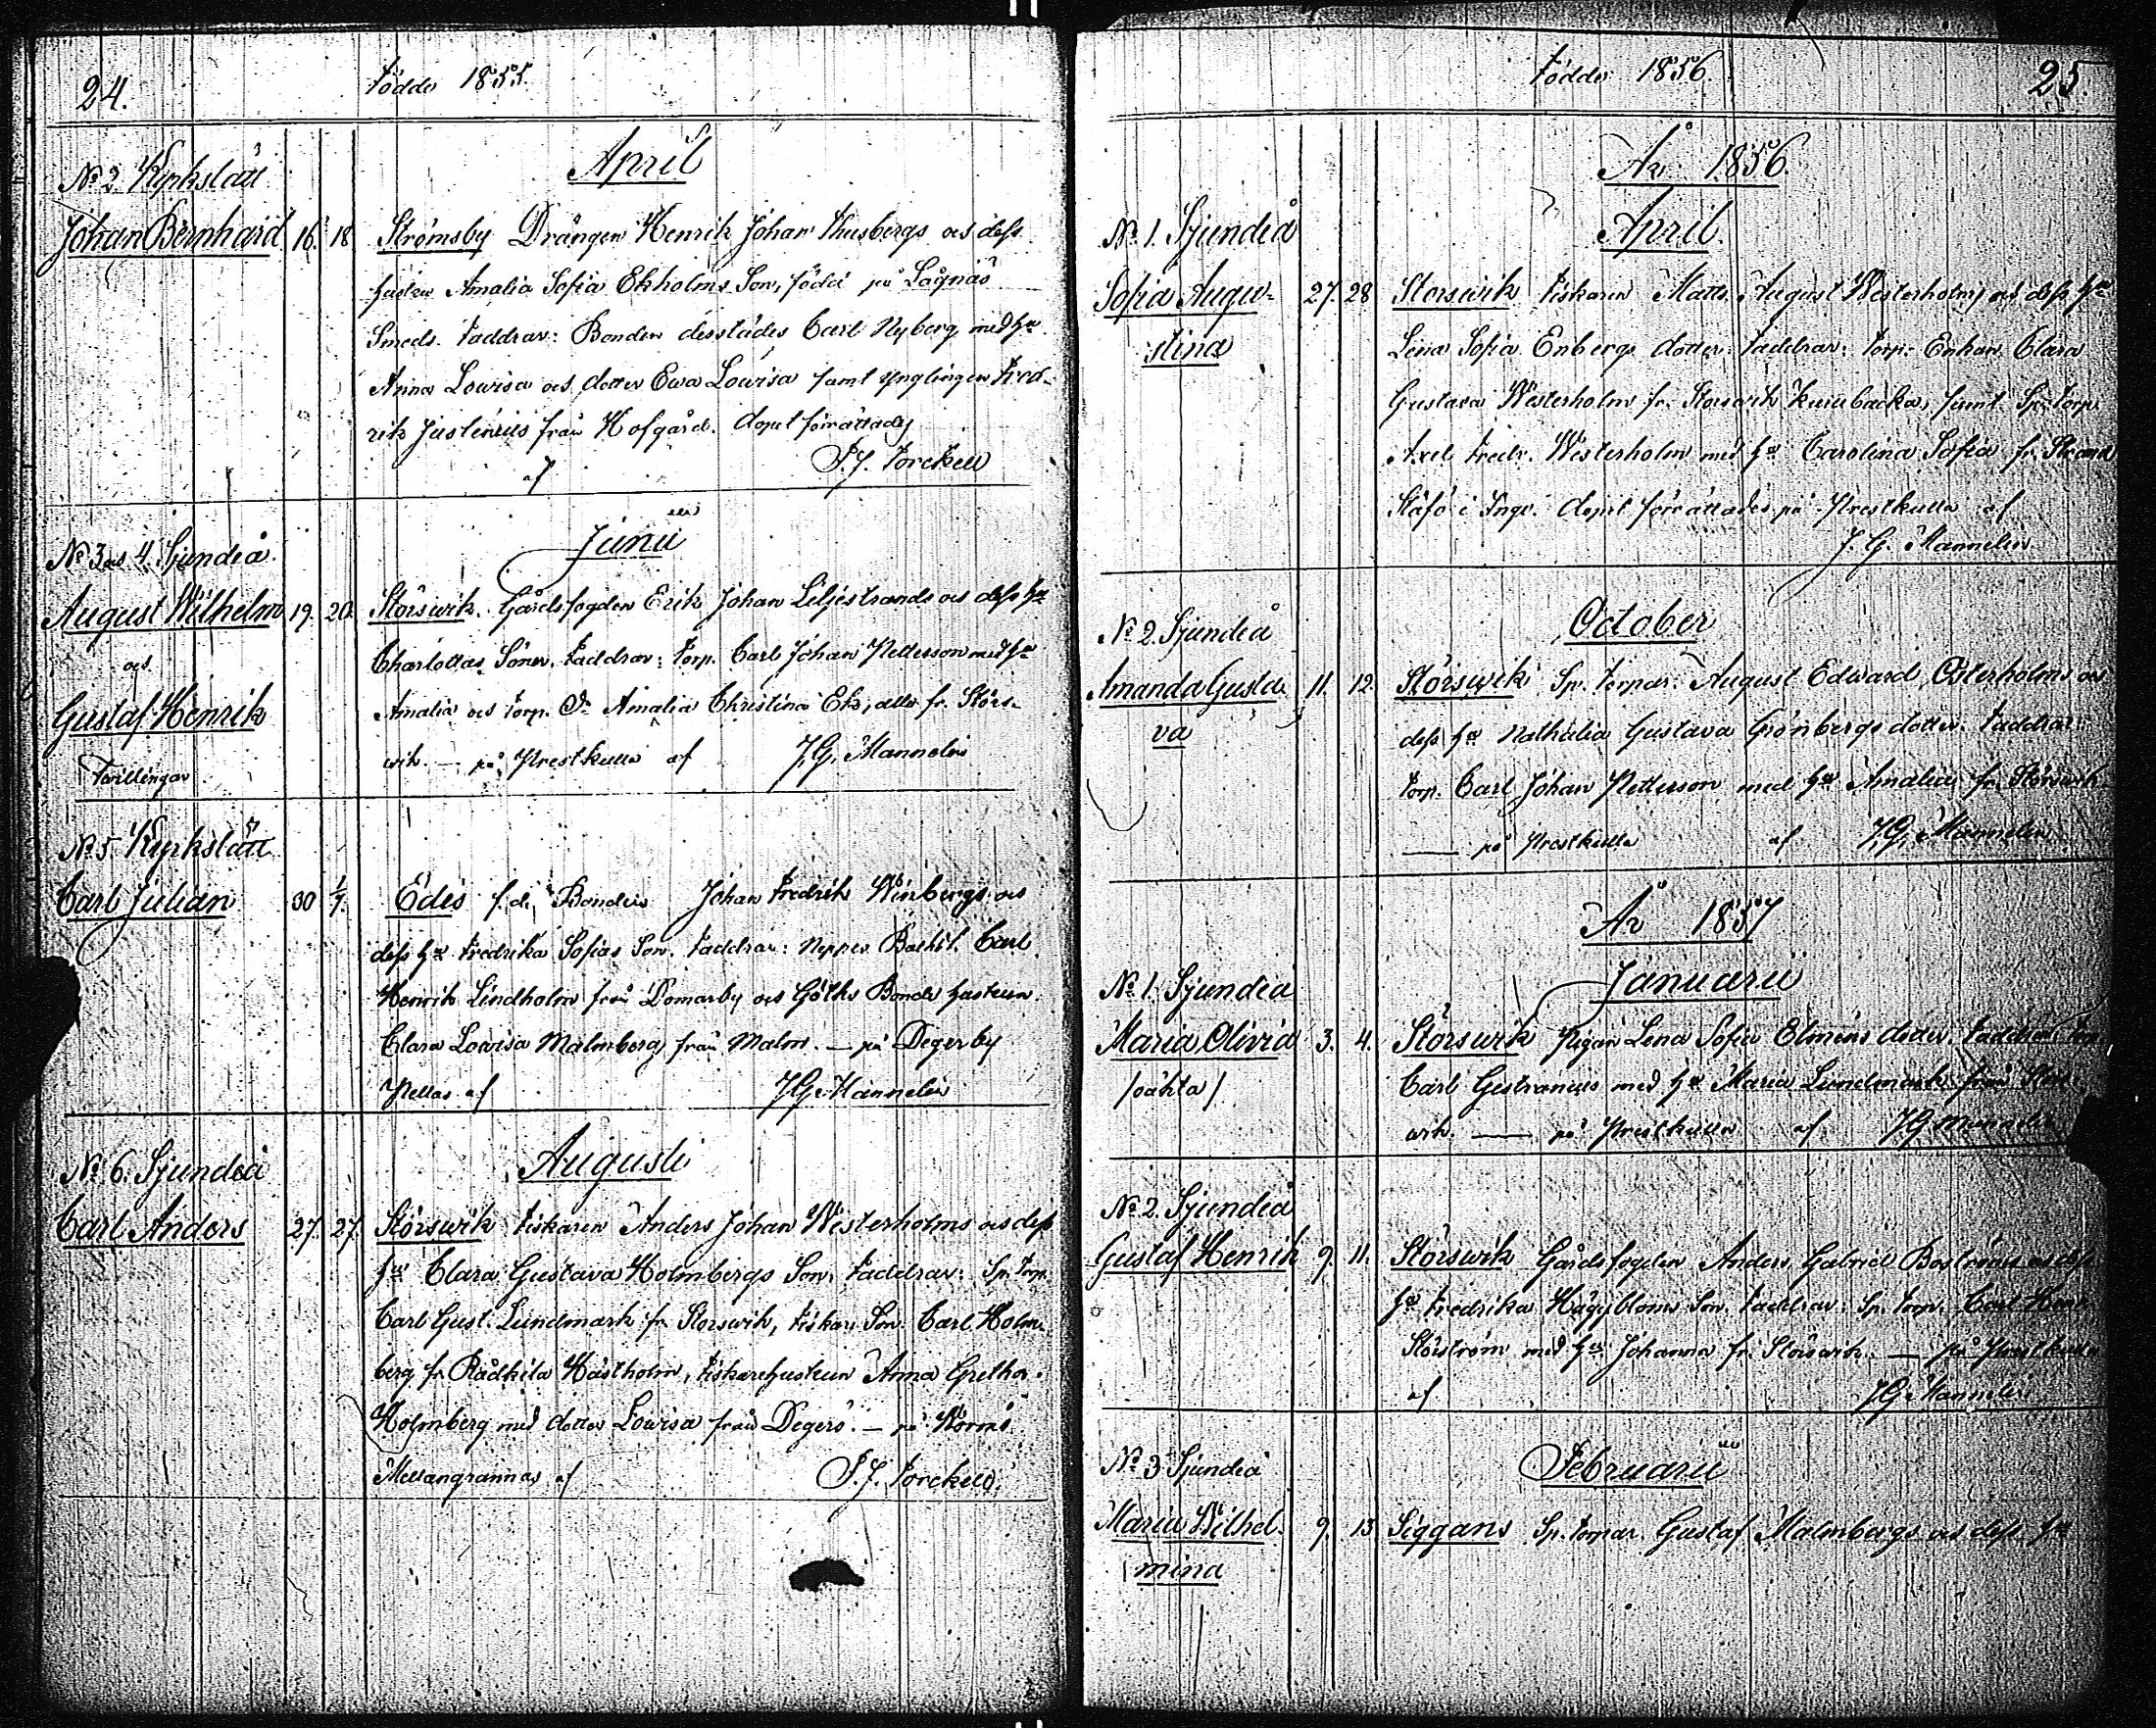 24.
Födde 1855.
April
No 2 Kyrkslätt
Johan Bernhard 16. 18. Strömsby Drängen Henrik Johan Thusbergs och dess
hustru Amalia Sofia Ekholms Son, född på Lågnäs
Smeds. Faddrar: Bonden desstädes Carl Nyberg med hu
Anna Lowisa och dotter Ewa Lowisa samt Ynglingen Fred-
rik Justenius från Hofgård. Dopet förrättades
af P. J. Forckell
Junii
No 3 och 4. Sjundeå.
August Wilhelm 19. 20. Störswik. Gårdsfogden Erik Johan Liljestrands och dess hu
och
Charlottas Söner. Faddrar: Torp. Carl Johan Petterson med hu
Gustaf Henrik
Amalia och Torp. Dr Amalia Christina Ek, alla fr. Störs-
Twillingar
wik. — på Prestkulla af J. G. Mannelin
No 5 Kyrkslätt
Carl Julian 30 1/7. Edis f.d. Bonden Johan Fredrik Winbergs och
dess hu Fredrika Sofias Son. Faddrar: Carl
Henrik Lindholm från Domarby och Bonde hustrun
Clara Lowisa Malmberg från Malm. — på Degerby
Pellas af J G Mannelin
Augusti
No 6. Sjundeå
Carl Anders 27. 27. Störswik Fiskaren Anders Johan Westerholms och dess
hu Clara Gustava Holmbergs Son, Faddrar: Sp. Torp.
Carl Gust. Lundmark fr. Störswik, Fiskare Son. Carl Holm-
berg fr. Rådkila Hästholm, Fiskarehustrun Anna Gretha
Holmberg med dotter Lowisa från Degerö. — på Wormö
Mellangrannas af P. J. Forckell.
Födde 1856.
25.
År 1856.
April
No 1. Sjundeå
Sofia Augu- 27. 28 Störswik Fiskaren Matts August Westerholms och dess hu
stina
Lena Sofia Enbergs dotter. Faddrar: Torp. Enkan Clara
Gustava Westerholm fr. Störswik samt Sp. Torp.
Axel Fredr. Westerholm med hu Carolina Sofia fr.
i Ingo. Dopet förrättades på Prestkulla af
J. G. Mannelin.
October
No 2. Sjundeå
Amanda Gusta- 11. 12. Störswik Sp. torpar. August Edward Österholms och
va
dess hu Nathalia Gustava Grönbergs dotter. Faddrar:
Torp. Carl Johan Petterson med hu Amalia fr. Störswik
— på Prestkulla af J. G. Mannelin
År 1857
Januarii
No 1. Sjundeå
Maria Olivia 3. 4. Störswik Pigan Lena Sofia Elmens dotter. Faddrar: Torp.
/oäkta/
Carl Gestranius med hu Maria Lundmark från Störs-
wik. — på Prestkulla af J G Mannelin
No 2. Sjundeå
Gustaf Henrik 9. 11. Störswik Gårdsfogden Anders Gabriel Boströms och dess
hu Fredrika Häggbloms Son. Faddrar: Sp. Torp. Carl Henr.
Störström med hu Johanna fr. Störswik. — på Prestkulla
af J G Mannelin
Februarii
No 3 Sjundeå
Maria Wilhel- 9. 13 Siggans Sp. torpar. Gustaf Malmbergs och dess hu
mina